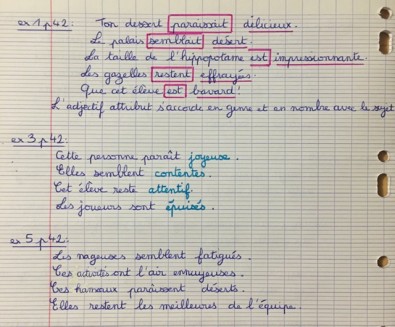 ex 1 p 42 : Ton dessert paraissait délicieux.
Le palais semblait désert.
La taille de l'hippopotame est impressionnante.
Les gazelles restent effrayés.
Que cet élève est bavard !
L'adjectif attribut s'accorde en genre et en nombre avec le sujet
ex 3 p 42 :
Cette personne paraît joyeuse.
Elles semblent contentes.
Cet élève reste attentif.
Les joueurs sont épuisés.
ex 5 p 42 :
Les nageuses semblent fatigués.
Ces activités ont l'air ennuyeuses.
Ces hameaux paraissent déserts.
Elles restent les meilleures de l'équipe.